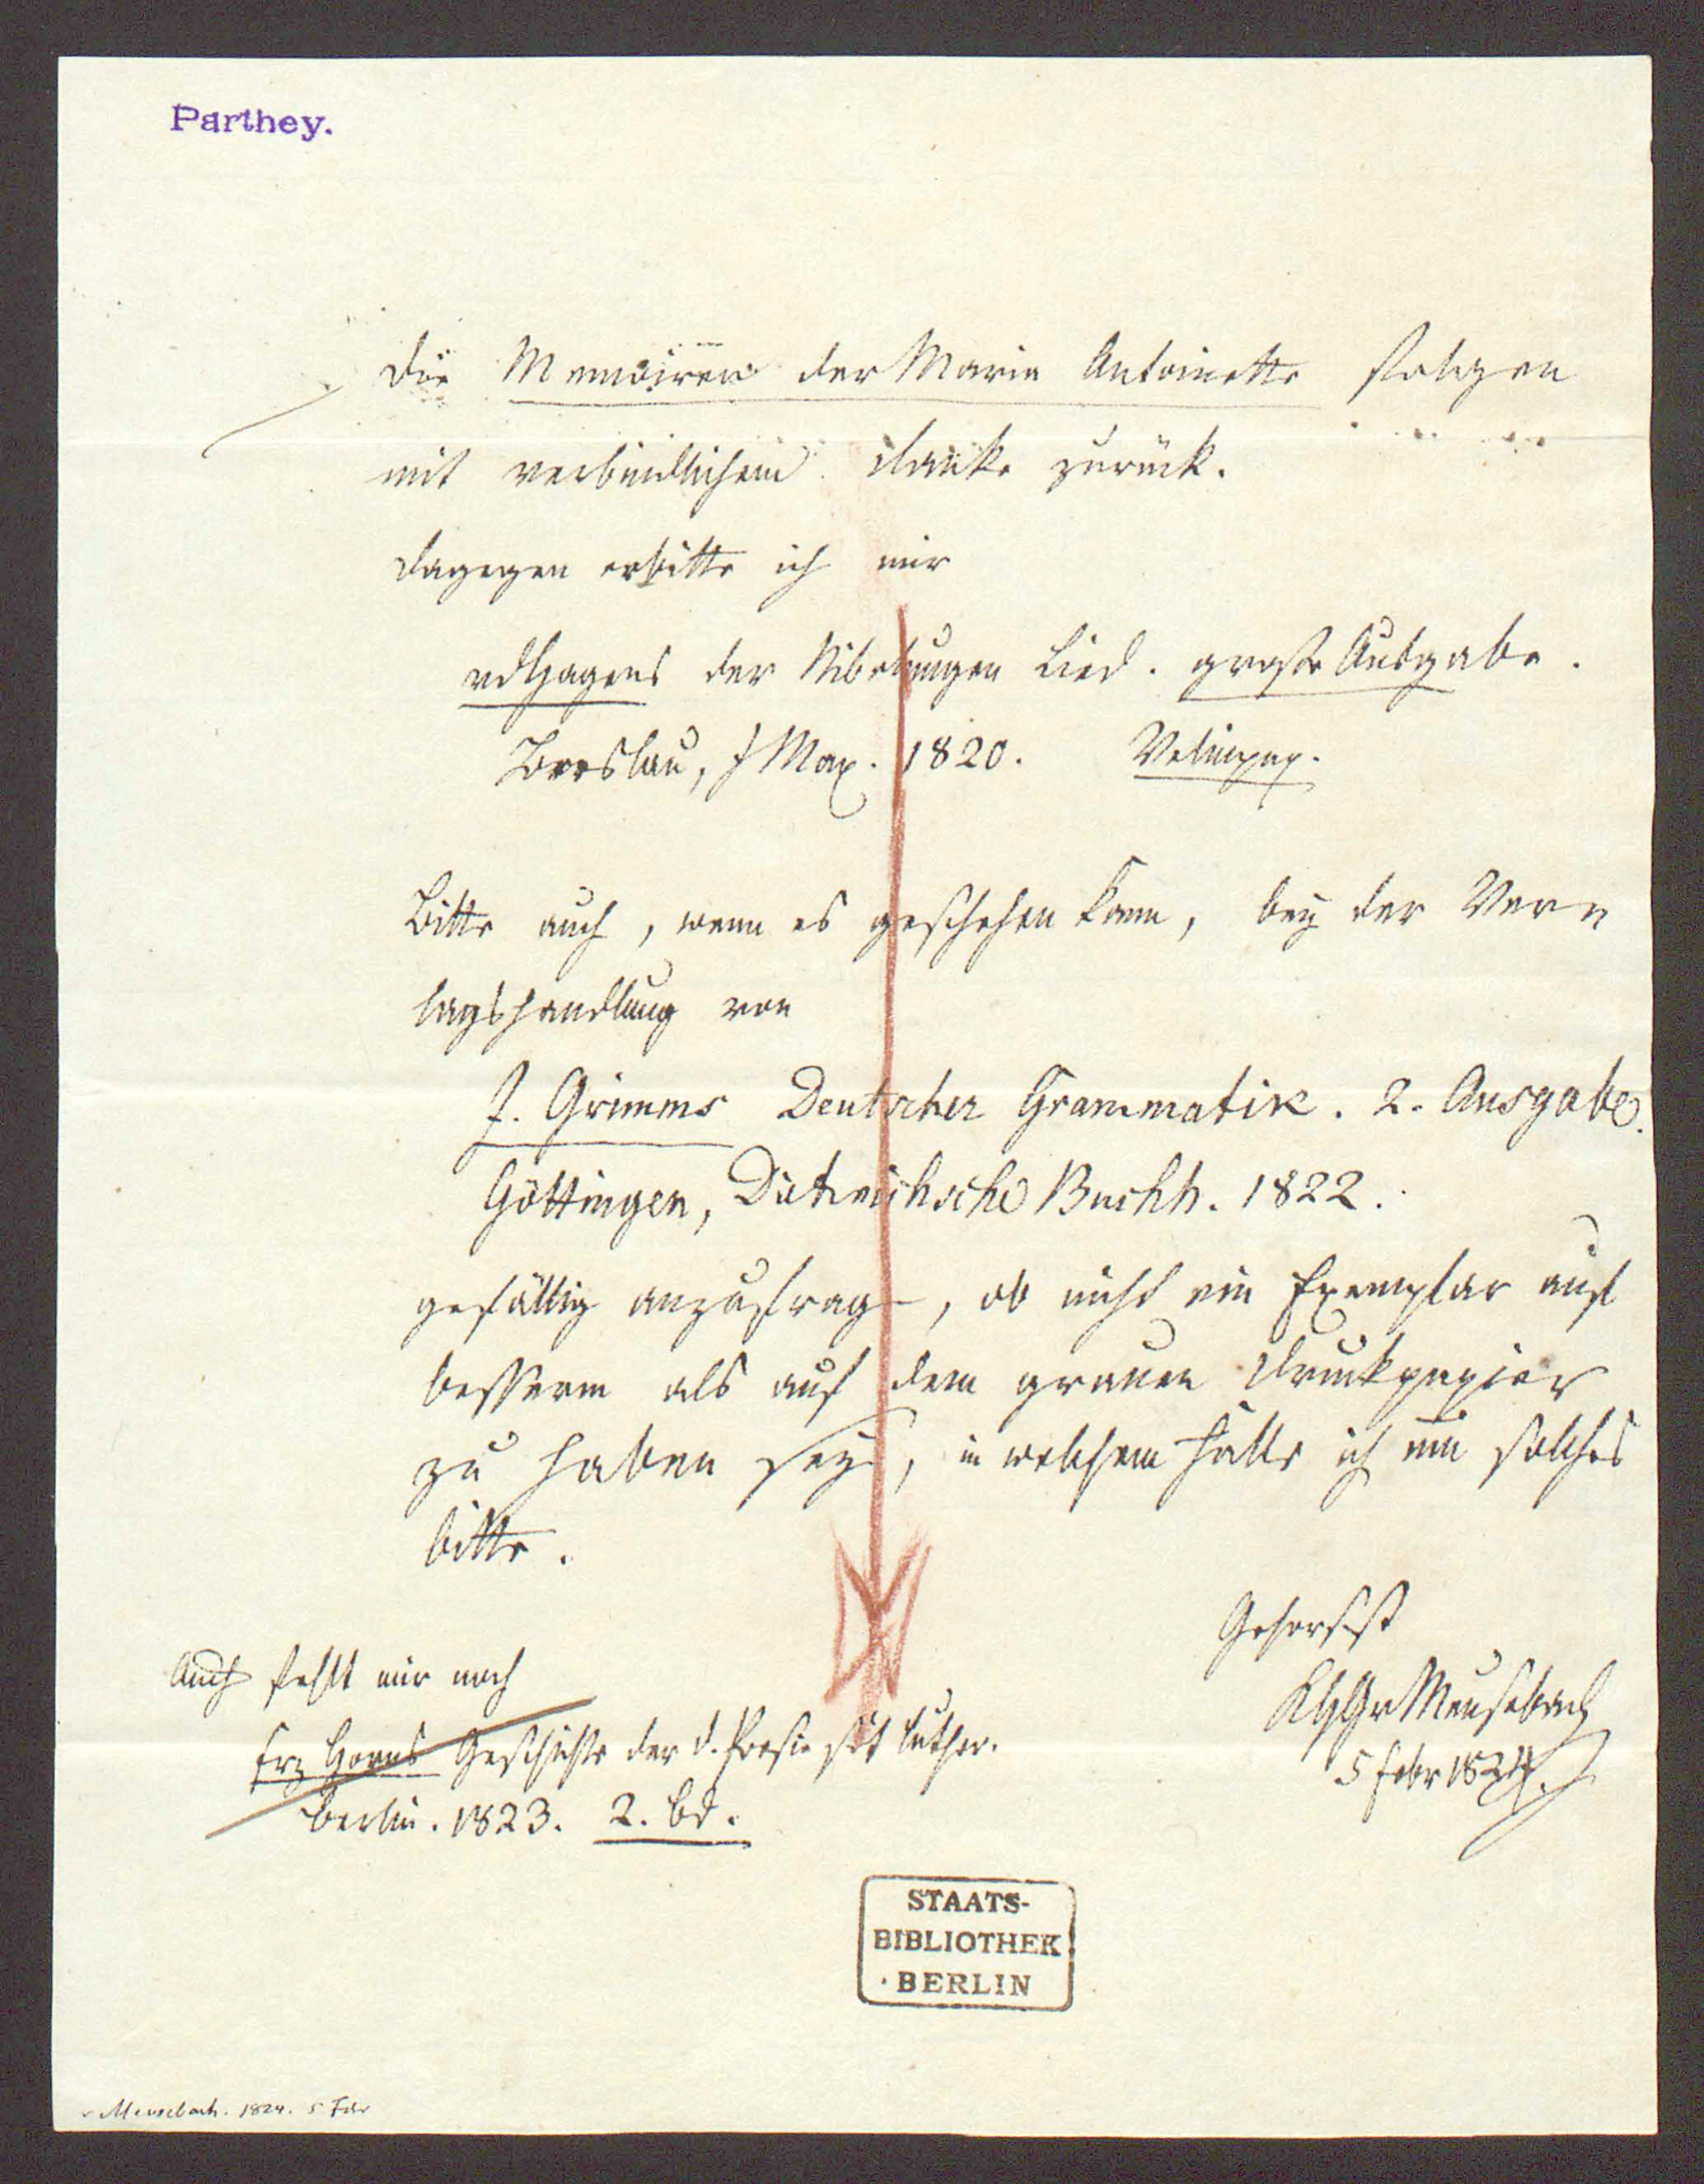 Parthey.
Die Memoiren der Marie Antoinette folgen
mit verbindlichem Danke zurück.
Dagegen erbitte ich mir
vdHagens der Nibelungen Lied. große Ausgabe.
Breslau, J Max. 1820. Velinpap.
Bitte auch, wenn es geschehen kann, bey der Ver=
lagshandlung von
J. Grimms Deutscher Grammatik. 2. Ausgabe.
Göttingen, Dieterichsche Buchh. 1822.
gefällig anzufragen, ob nicht ein Exemplar auf
besserm als auf dem grauen Druckpapier
zu haben sey, in welchem Falle ich um solches
bitte.
Gehorsst
Meusebach
5 Febr 1824.
Auch fehlt mir noch
Frz Horns Geschichte der d. Poesie seit Luther.
Berlin. 1823. 2. Bd.
STAATS-
BIBLIOTHEK
BERLIN
v Meusebach. 1824. 5 Febr